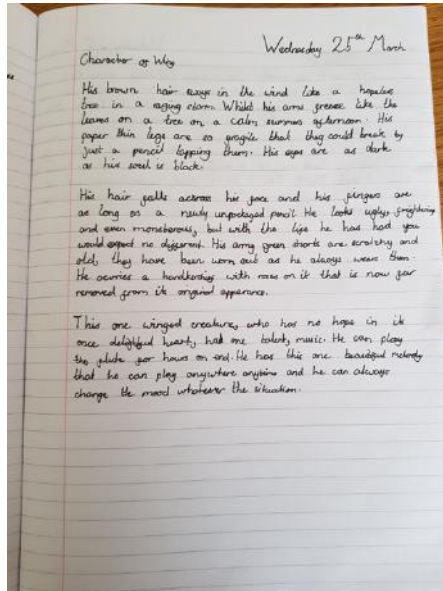 Wednesday 25th March
Character of Wing
His brown hair sways in the wind like a hopeless
tree in a raging storm. Whilst his arms greese like the
leaves on a tree on a calm summers afternoon. His
paper thin legs are so fragile that they could break by
just a pencil tapping them. His eyes are as dark
as his soul is black.
His hair falls across his face and his fingers are
as long as a newly unpackaged pencil. He looks ugly, frightening
and even monsterous, but with the life he has had you
would expect no different. His army green shorts are scratchy and
old, they have been worn out as he always wears them.
He carries a handkerchief with roses on it that is now far
removed from its original apperance.
This one winged creature, who has no hope in its
once delightful heart, had one talent, music. He can play
the flute for hours on end. He has this one beautiful melody
that he can play anywhere anytime and he can always
change the mood whatever the situation.